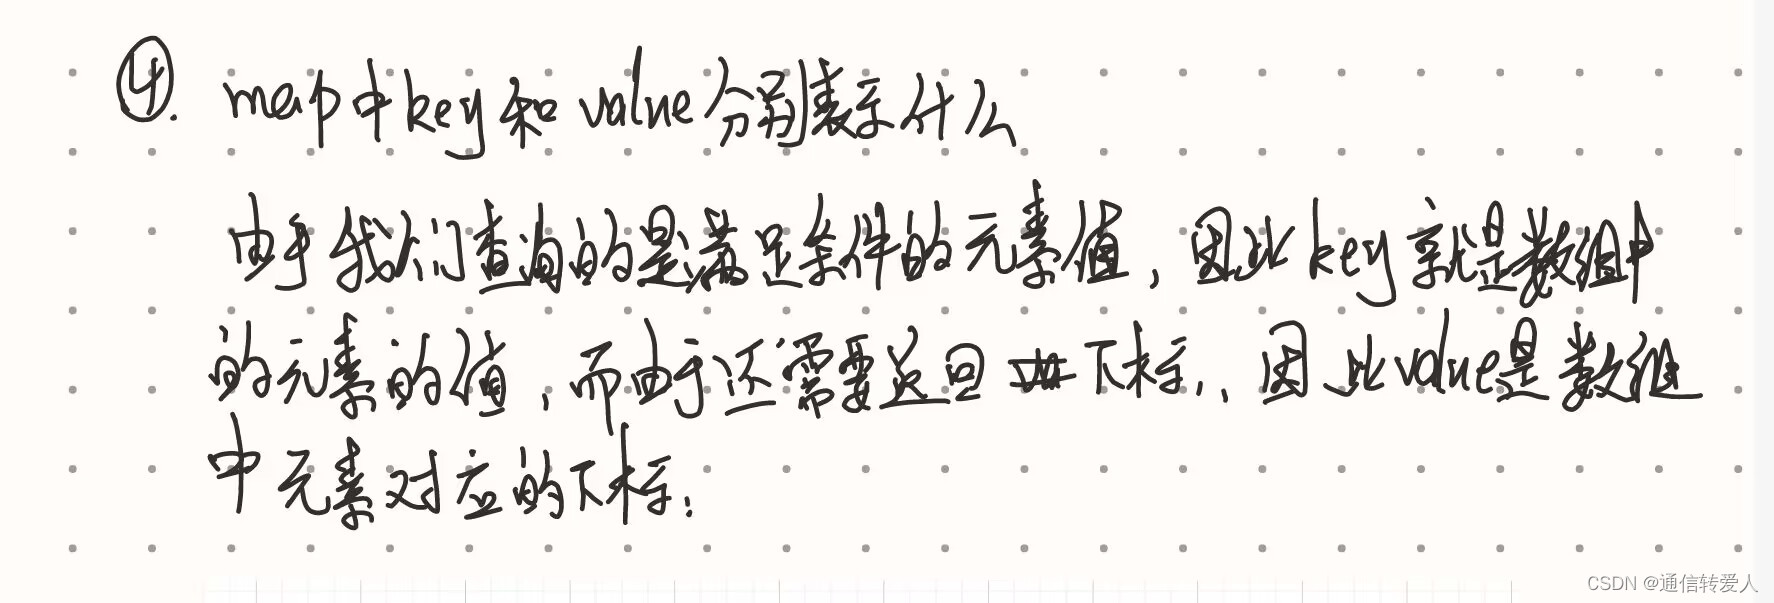 ④. map中key和value分别表示什么
由于我们查询的是满足条件的元素值，因此key就是数组中
的元素的值，而由于还需要返回下标，因此value是数组
中元素对应的下标；
CSDN @通信转爱人